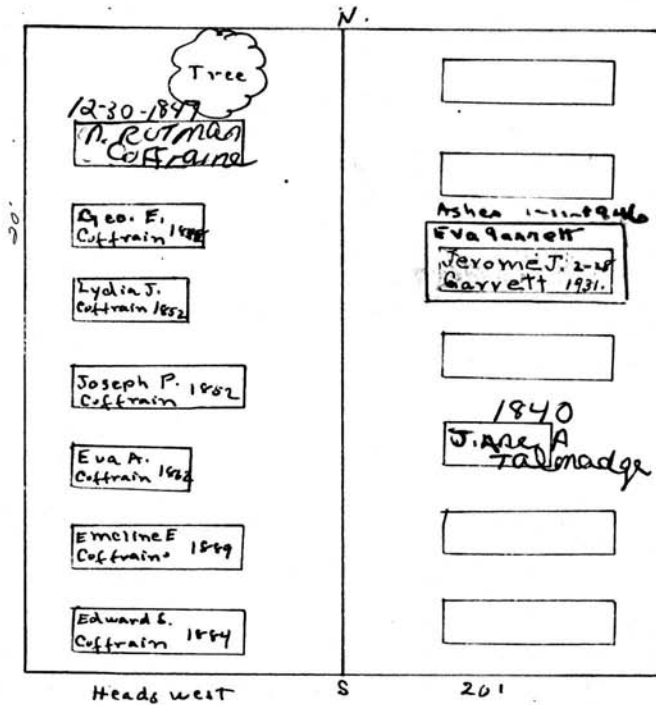 N.
Tree
12-30-1847
N. RUTMAN
Coffraine
Geo. E.
Coffrain
Lydia J.
Coffrain 1852
Joseph P.
Coffrain 1852
Eva A.
Coffrain
Emeline E
Coffrain 1889
Edward S.
Coffrain 1884
20'
Heads west
S
Ashes
Eva Garrett
Jerome J. 2-28
Garrett 1931.
1840
J. Ane A
Talmadge
201